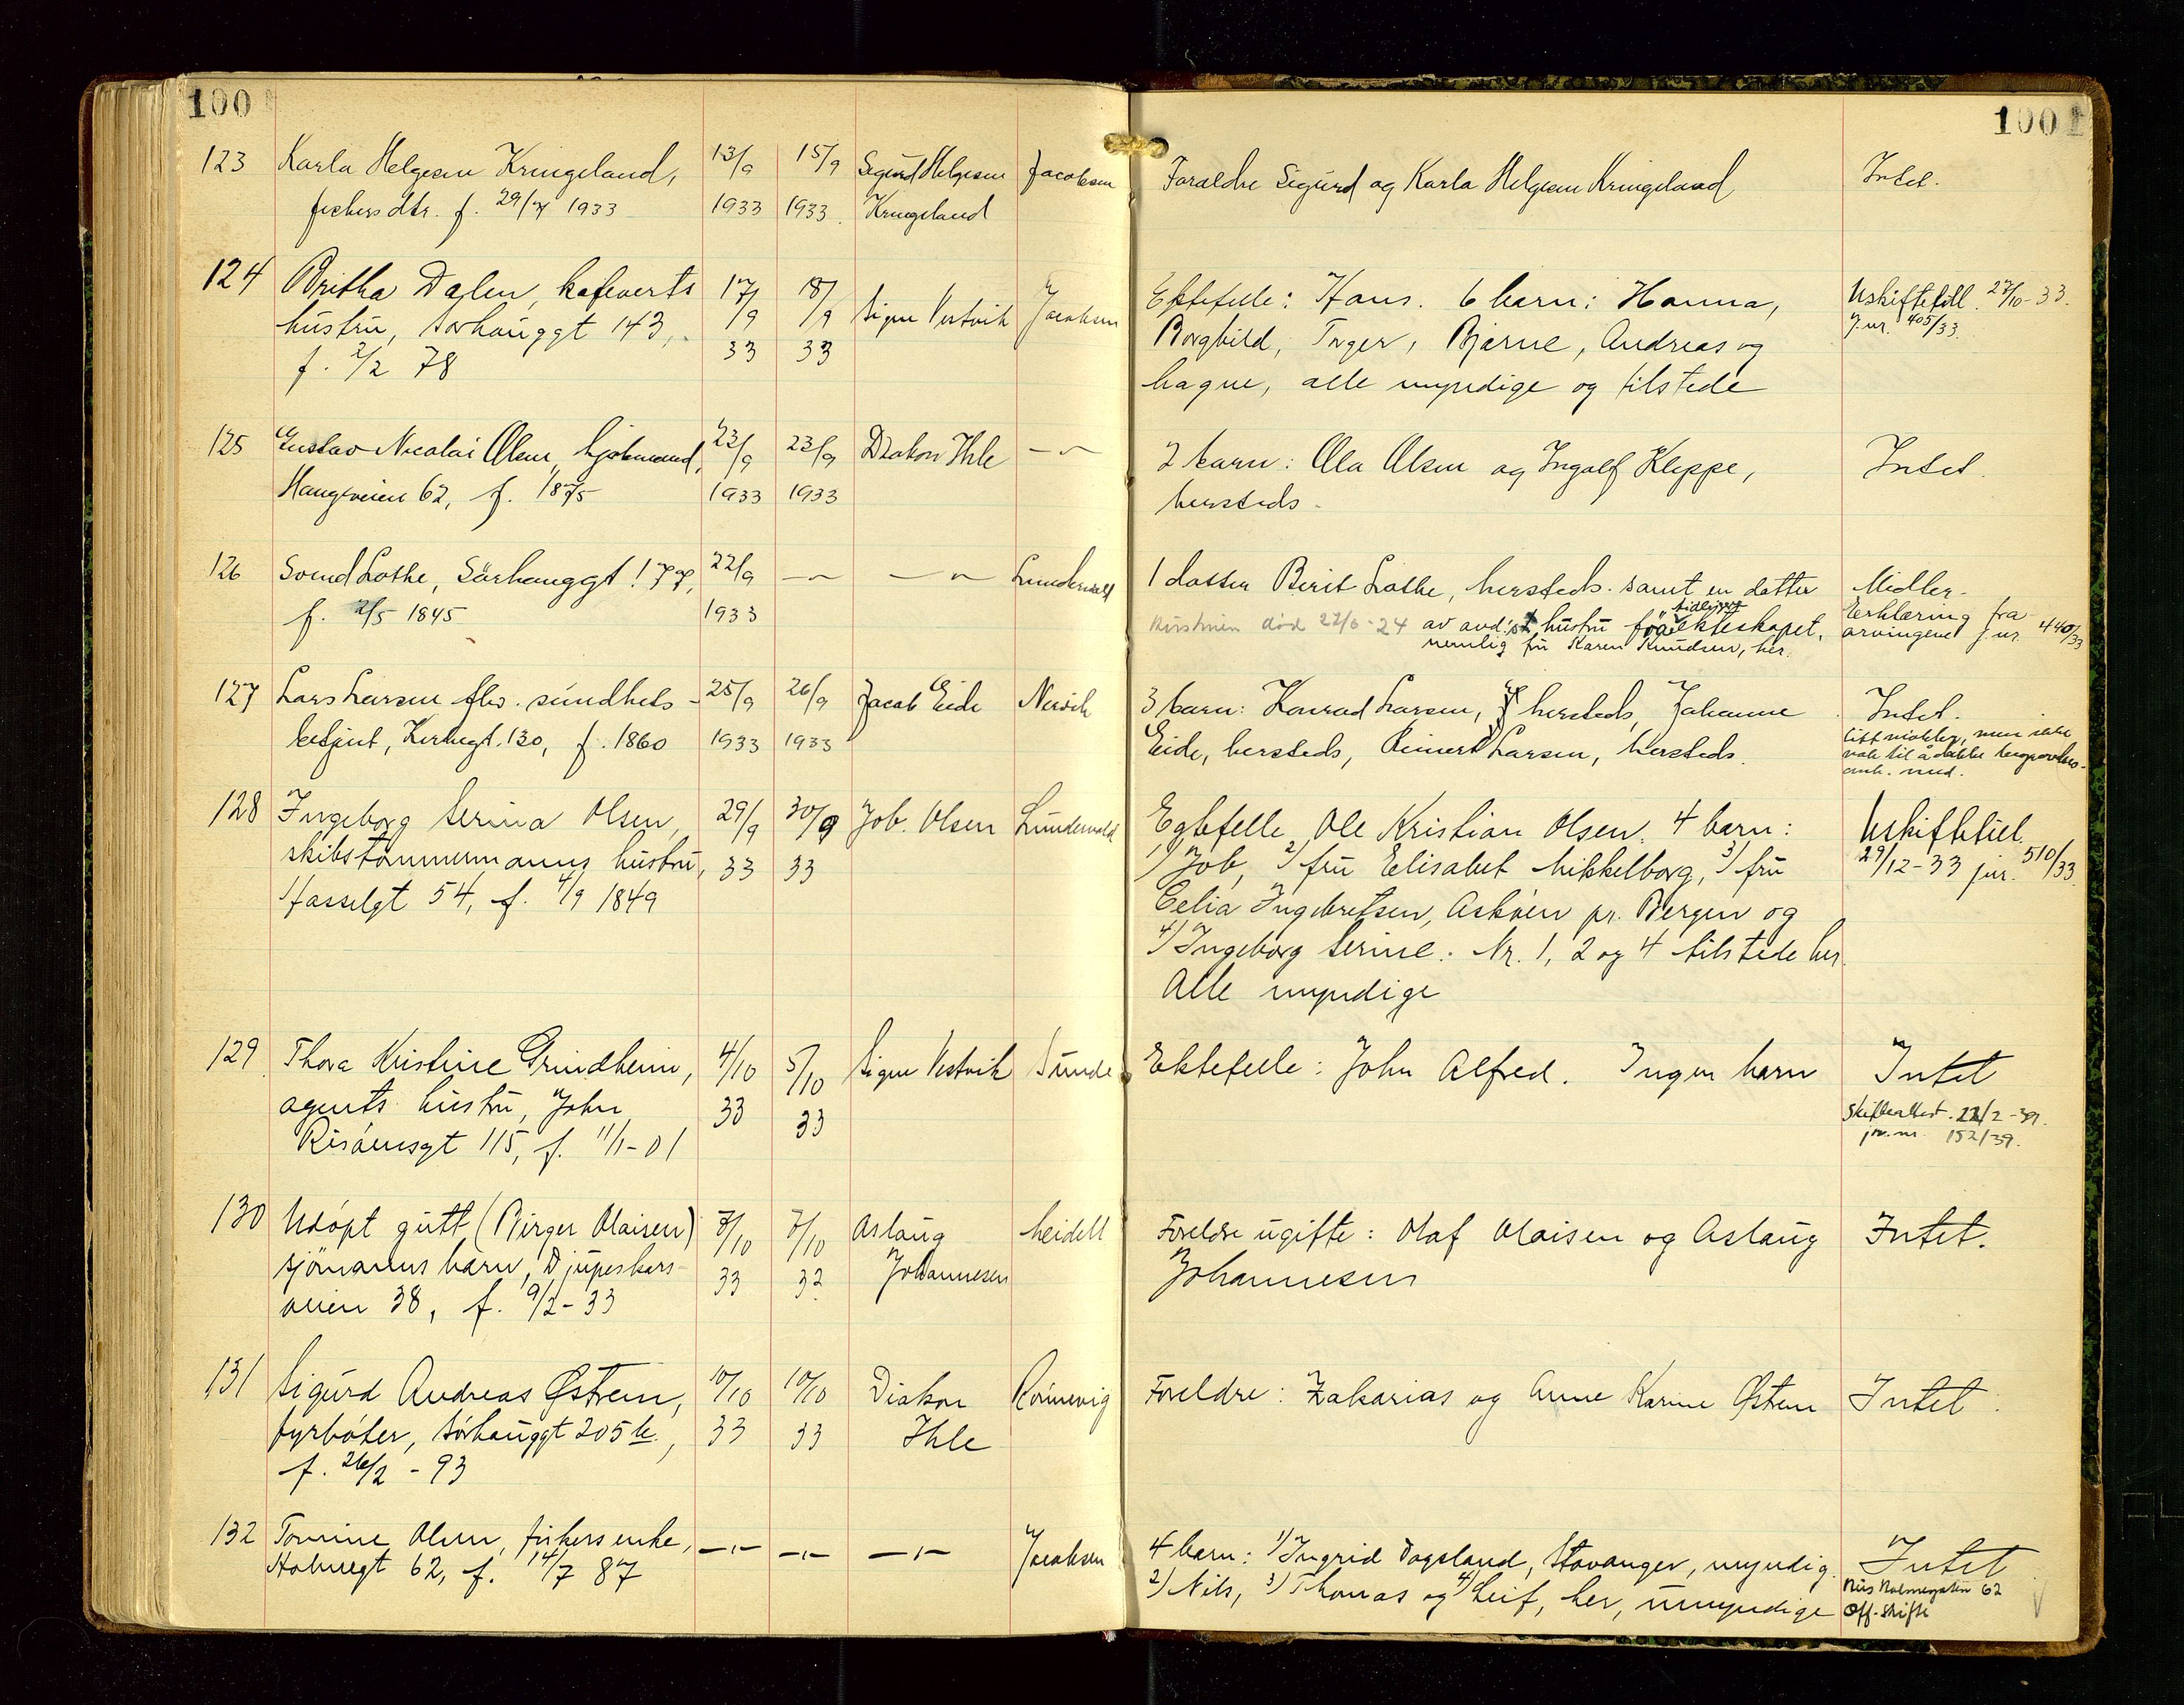 100
123 Karla Helgesen Kringeland, 13/9 15/9 Sigurd Helgesen Jacobsen
fiskers dtr. f. 29/7 1933 1933 1933. Kringeland
124 Britha Dalen, kafeverts 17/9 18/9 Signe Vestvik Jacobsen
hustru, Sørhauggt 143, 33 33
f. 2/2 78
125 Gustav Nicolai Olsen, 23/9 23/9 Diakon Ihle -~
Haugeveien 62, f. 1875 1933 1933
126 Svend Lothe, Sørhauggt 177, 22/9 -~ -~ Lundervold
f. 2/5 1845 1933
127 Lars Larsen fhv. sundhets- 25/9 26/9 Jacob Eide Nervik
betjent, Kirkegt. 130, f. 1860 1933 1933
128 Ingeborg Serina Olsen, 29/9 30/9 Job. Olsen Lundevold
skibstømmermanns hustru, 33 33
Hasselgt 54, f. 4/9 1849
129 Thora Kristine Grindheim, 4/10 5/10 Signe Vestvik Sunde
agents hustru, John 33 33
Risøensgt 115, f. 11/1-01
130 Udøpt gutt (Birger Olaisen) 7/10 7/10 Aslaug Meidell
sjømanns barn, Djupeskars- 33 33 Johannesen
veien 38, f. 9/2-33
131 Sigurd Andreas Østrem, 10/10 10/10 Diakon Rønnevig
fyrbøter, Sørhauggt 205 b, 33 33 Ihle
f. 26/2 - 93
132 Tomine Olsen, fiskers enke, -"- -"- -"- Jacobsen
Holmegt 62, f. 14/7 87
100
Foraldre Sigurd og Karla Helgesen Kringeland Intet.
Ektefelle: Hans. 6 barn: Hanna, Uskiftetill. 27/10-33.
Borghild, Inger, Bjarne, Andreas og J.nr. 405/33.
Magne, alle myndige og tilstede
2 barn: Ola Olsen og Ingolf Kleppe, Intet.
hersteds.
1 datter Berit Lothe, hersteds. samt en datter Midler.
tidligere
Hustruen død 22/6-24 av avd's hustru før ekteskapet, Erklæring fra
nemlig fru Karen Knudsen, her. arvingene J.nr. 440/33
3 barn: Konrad Larsen, hersteds, Johanne Intet.
Eide, hersteds, Reinert Larsen, hersteds. litt midler, men ikke
nok til å dekke begravelses-
omk. med.
Egtefelle Ole Kristian Olsen. 4 barn: Uskiftetill.
1) Job, 2) fru Elisabet Mikkelborg, 3) fru 29/12-33 jnr. 510/33.
Celia Ingebretsen, Askøen pr. Bergen og
4) Ingeborg Serine. Nr. 1, 2 og 4 tilstede her.
Alle myndige
Ektefelle: John Alfred. Ingen barn Intet
Skifteattest. 22/2-39.
jnr. nr. 152/39.
Foreldre ugifte: Olaf Olaisen og Aslaug Intet.
Johannesen
Foreldre: Zakarias og Anne Karine Østrem Intet.
4 barn: 1) Ingrid Dagsland, Stavanger, myndig. Intet
2) Nils, 3) Thomas og 4) Leif, her, umyndige Hus Holmegaten 62
Off. skifte